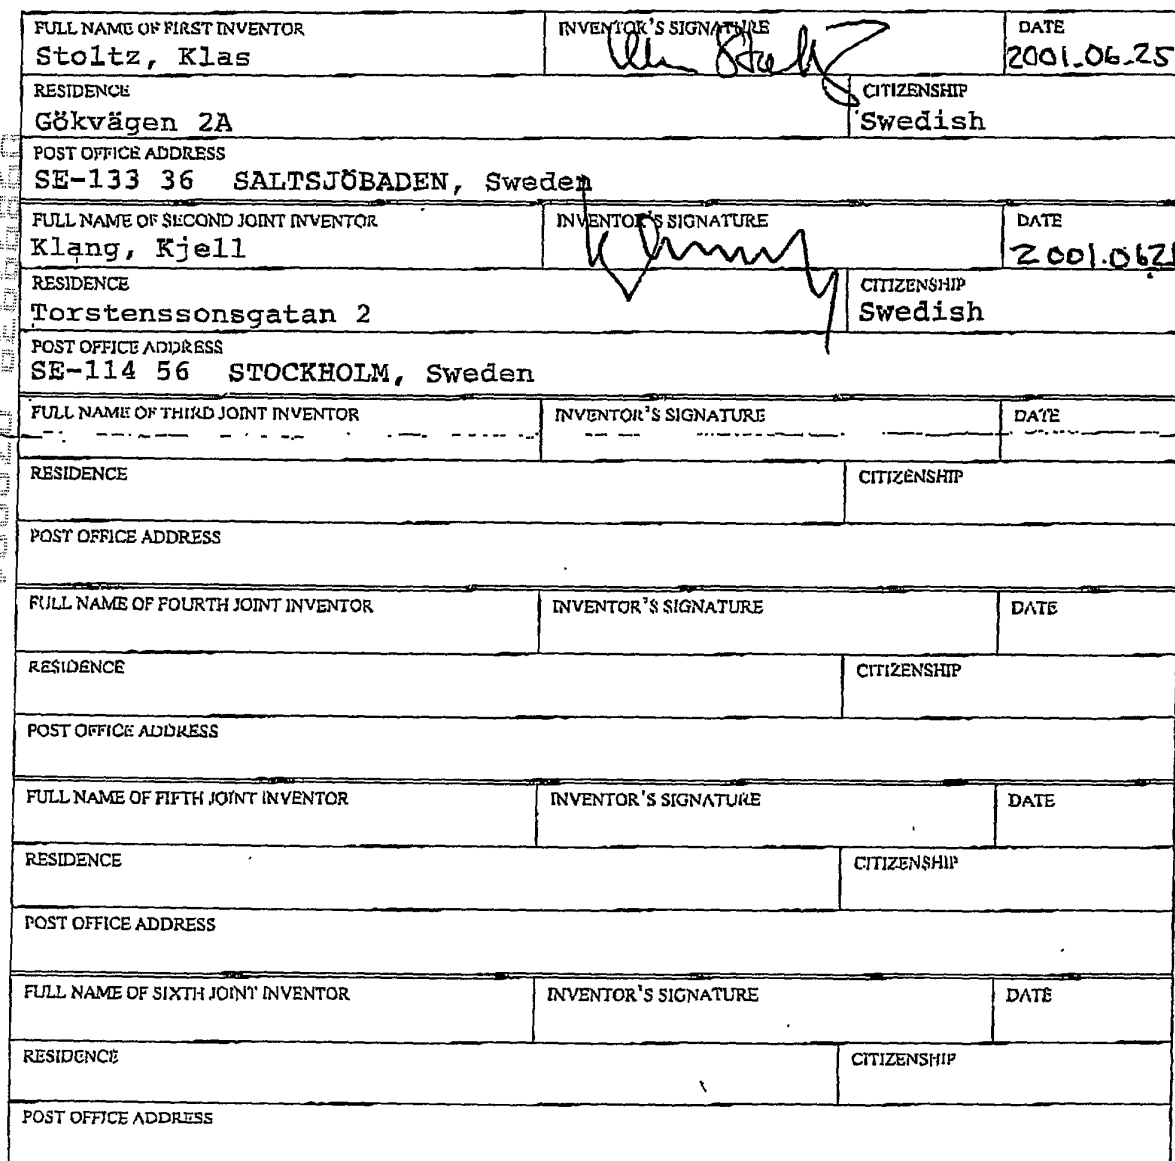 FULL NAME OF FIRST INVENTOR INVENTOR'S SIGNATURE DATE
Stoltz, Klas 2001.06.25
RESIDENCE CITIZENSHIP
Gökvägen 2A Swedish
POST OFFICE ADDRESS
SE-133 36 SALTSJÖBADEN, Sweden
FULL NAME OF SECOND JOINT INVENTOR INVENTOR'S SIGNATURE DATE
Klang, Kjell 2001.0621
RESIDENCE CITIZENSHIP
Torstenssonsgatan 2 Swedish
POST OFFICE ADDRESS
SE-114 56 STOCKHOLM, Sweden
FULL NAME OF THIRD JOINT INVENTOR INVENTOR'S SIGNATURE DATE
RESIDENCE CITIZENSHIP
POST OFFICE ADDRESS
FULL NAME OF FOURTH JOINT INVENTOR INVENTOR'S SIGNATURE DATE
RESIDENCE CITIZENSHIP
POST OFFICE ADDRESS
FULL NAME OF FIFTH JOINT INVENTOR INVENTOR'S SIGNATURE DATE
RESIDENCE CITIZENSHIP
POST OFFICE ADDRESS
FULL NAME OF SIXTH JOINT INVENTOR INVENTOR'S SIGNATURE DATE
RESIDENCE CITIZENSHIP
POST OFFICE ADDRESS